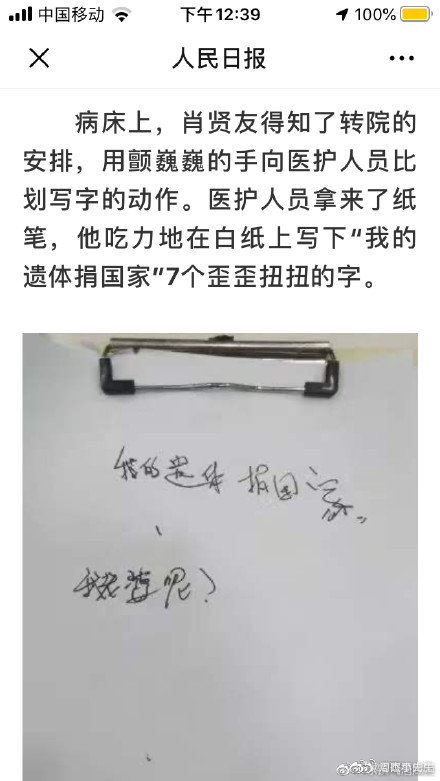 中国移动 下午12:39 100%
人民日报
病床上，肖贤友得知了转院的
安排，用颤巍巍的手向医护人员比
划写字的动作。医护人员拿来了纸
笔，他吃力地在白纸上写下“我的
遗体捐国家”7个歪歪扭扭的字。
我的遗体捐国家。
我老婆呢？